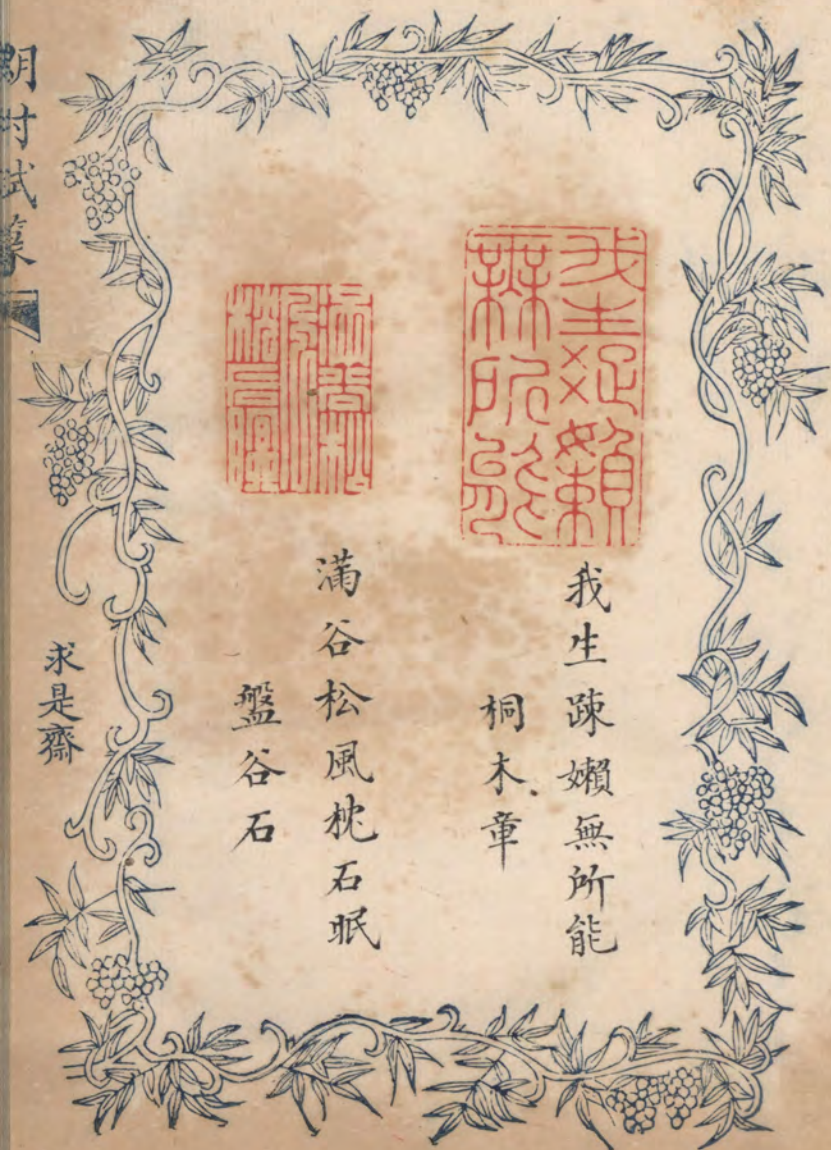 我生疎嬾無所能
我生疎嬾無所能
桐木章
滿谷松風枕石眠
滿谷松風枕石眠
盤谷石
求是齋